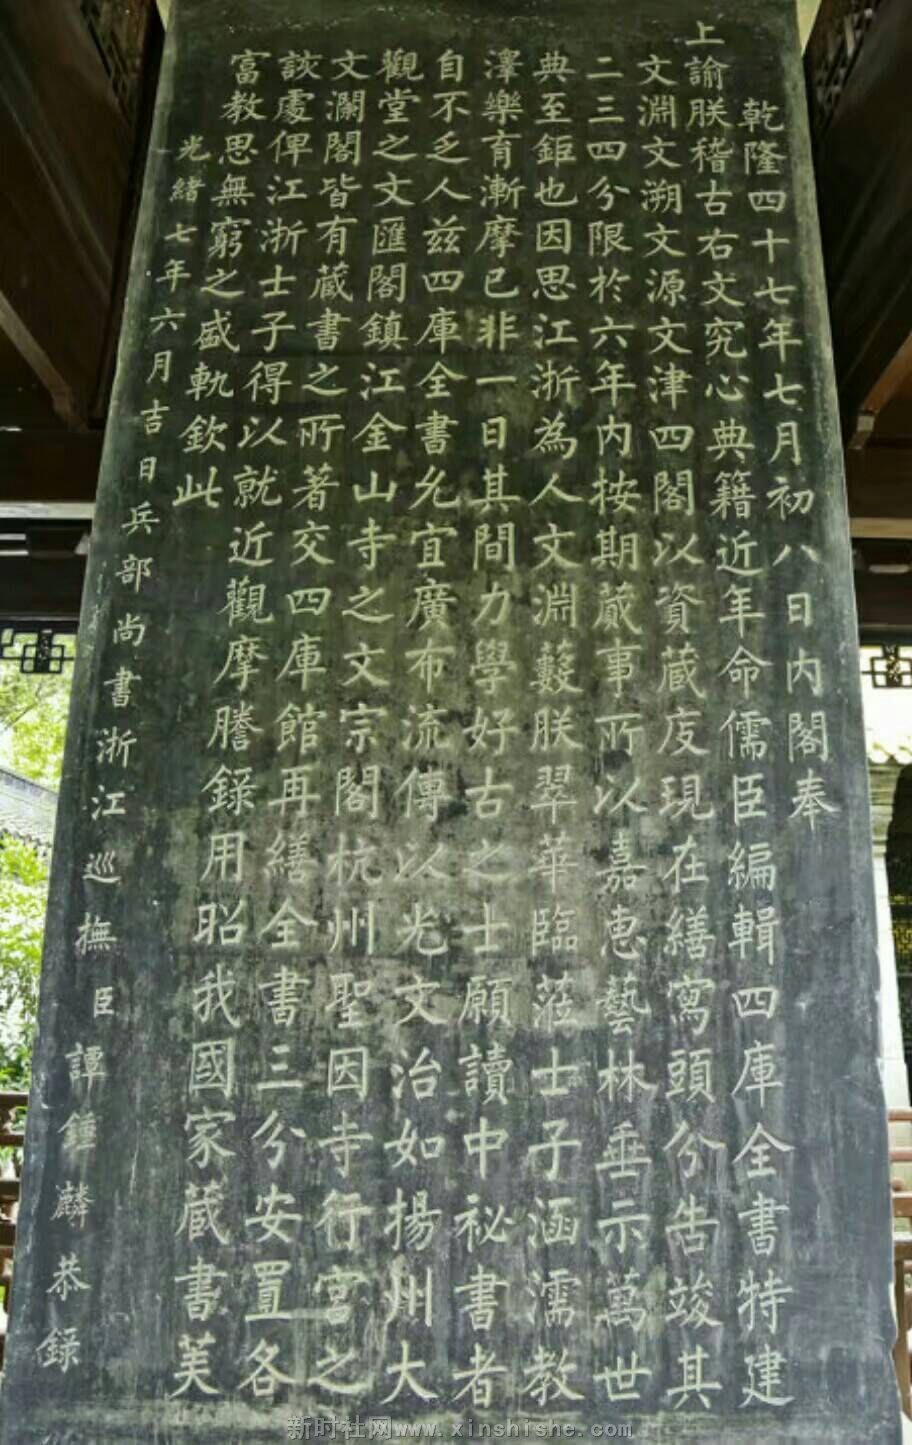 乾隆四十七年七月初八日内閣奉
上諭朕稽古右文究心典籍近年命儒臣編輯四庫全書特建
文淵文溯文源文津四閣以資蔵庋現在繕寫頭分告竣其
二三四分限於六年内按期蕆事所以嘉惠藝林垂示萬世
典至鉅也因思江浙為人文淵藪朕翠華臨莅士子涵濡教
澤樂育漸摩已非一日其間力學好古之士願讀中祕書者
自不乏人兹四庫全書允宜廣布流傳以光文治如揚州大
觀堂之文匯閣鎮江金山寺之文宗閣杭州聖因寺行宫之
文瀾閣皆有蔵書之所著交四庫館再繕全書三分安置各
該處俾江浙士子得以就近觀摩謄録用昭我國家蔵書美
富教思無窮之盛軌欽此
光緒七年六月吉日兵部尚書浙江巡撫臣譚鍾麟恭録
新时社网www.xinshishe.com